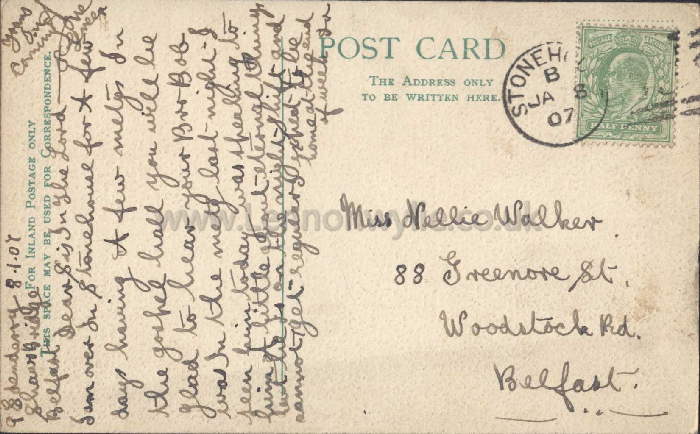 POST CARD
THE ADDRESS ONLY
TO BE WRITTEN HERE.
FOR INLAND POSTAGE ONLY
THIS SPACE MAY BE USED FOR CORRESPONDENCE.
STONEHO
B
JA 8
07
HALF PENNY
Miss Nellie Walker
88 Greenore St.
Woodstock Rd.
Belfast.
8.1.07
Shaws Bridge
Belfast. Dear Sis in the Lord
I am over in Stonehouse for a few
days having a few metgs in
the gospel hall you will be
glad to hear your Bro Bob
was in the meetg last night I
seen him today & was speaking to
him a little about eternal things
but he is on the night shift and
cannot get regular I expect to be
home at the end
of week D.V.
Yours
in
Coming One
www.Lennoxwylie.co.uk